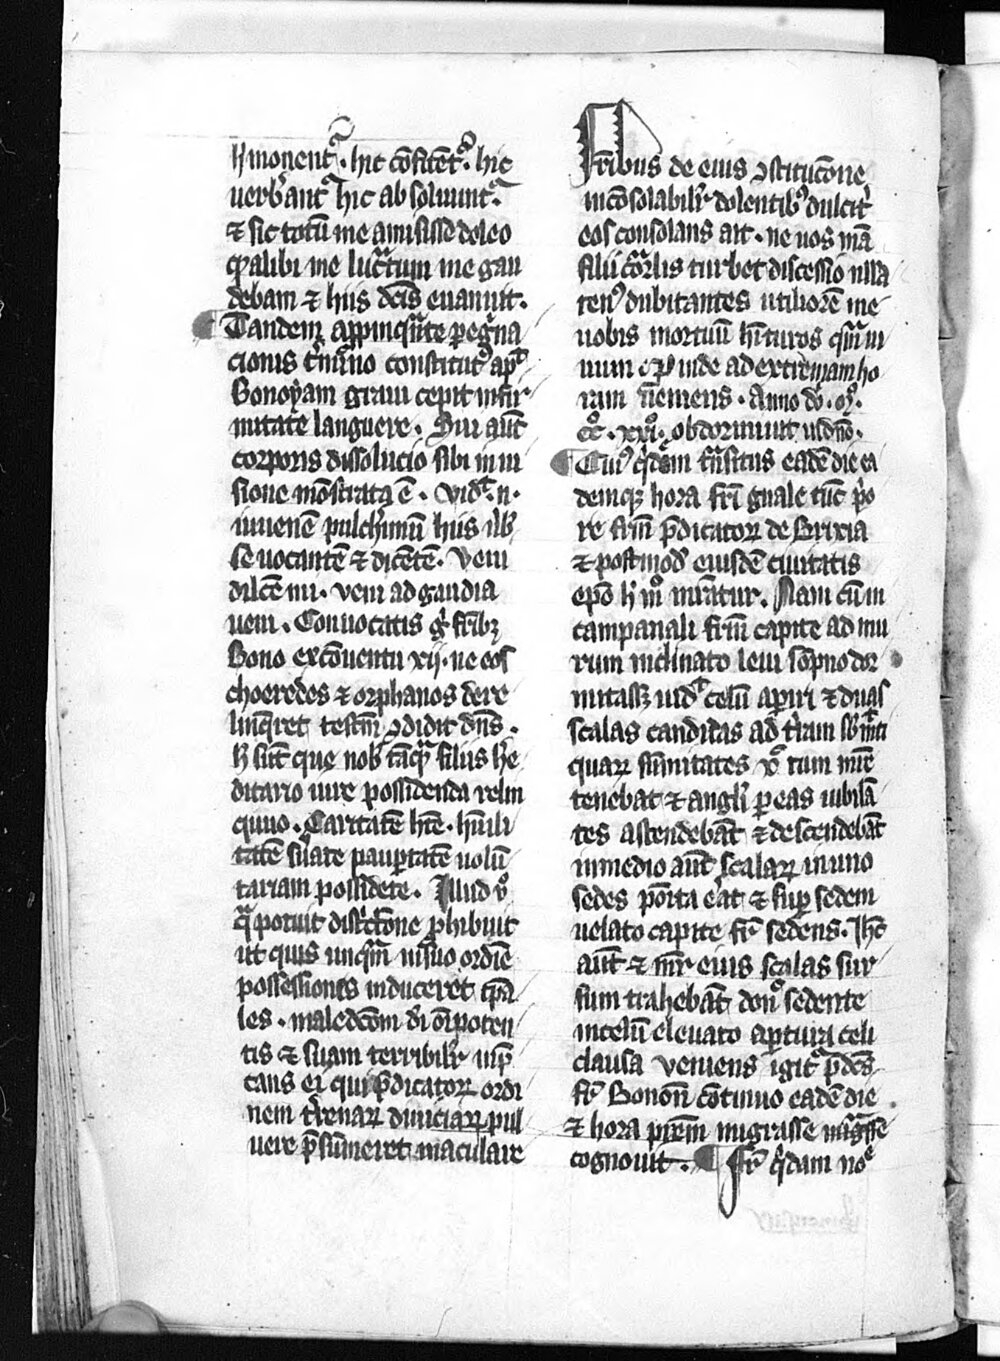 hii monentr̃. hic cōfitēt͛. hic
verb̾ant͛ hic ab soluunt͛.
⁊ sic totū me amisisse doleo
q̾ alibi me luc͛tum me gau
debam ⁊ hiis dc̄is euanuit.
Tandem appinq̃nte peg̾na
cionis t̾mino constitut⁹ ap͛
Bonoyam graui cepit infir
mitate languere. Sui aūt
corporis dissolucio sibi in ui
sione mōstrata ē. vid͛.n.
iuuenē pulch̾imū hiis v̾b̾
se uocantē ⁊ dicētē. veni
dilc̄e mi. veni ad gaudia
ueni. Conuocatis g̾ fr̄ibꝫ
Bono ex cōuentu xij. ne eos
exheredes ⁊ orphanos dere
linq̄ret testm̄ ꝯdidit dn̄s.
h̾ sūt que nob̾ tāq̃ filiis he
ditario iure possidenda relin
quuo. Caritatē hr̄e. hūili
tatē suare paup̱tatē uolū
tariam possidete. Illud v̊
q̃ potuit dist͛ctōne ꝓhibuit
ut quis unq̃m in suo ordīe
possessiones induceret tp̄a
les. maledc̄om dī oīpoten
tis ⁊ suam terribilr̄ inp̄
cans ei qui p̄dicatoꝝ ordi
nem t̾renaꝝ diuiciaꝝ pul
uere p̄sūmeret maculare
Fr̄ibus de eius ꝯstitucōne
incōsolabilr̄ dolentib⁹ dulcit̾
eos consolans ait. ne uos mā
filii cōrlis turbet discessio nlla
ten⁹ dubitantes utiliorē me
uobis mortuū hīturos q̃m ui
uum. Proinde ad extremam ho
ram ueniens. Anno dō. m̊.
cc̊. xxi. obdormiuit in dn̄o.
Cui⁹ q̾dem trāsitus eadē die ea
demqꝫ hora fr̄i guale tūc p̾o
re fr̄m p̄dicatoꝝ de Brixia
⁊ postmod̾ eiusdē ciuitatis
epō h̾ m̊ mr̄atur. Nam cū in
campanali fr̄m capite ad mu
rum inclinato leui sōpno dor
mitass̾ uid͛ celū aperiri ⁊ duas
scalas candidas ad t̾ram sb̾mitti
quaꝝ sūmitates x̊ cum mr̄e
tenebat ⁊ angl̾i p eas iubilā
tes ascendebāt ⁊ descendebāt
in medio aūt scalaꝝ in uno
sedes po͛ita erat ⁊ sup̱ sedem
uelato capite fr̄ sedens. Ihc̄
aūt ⁊ mr̄ eius scalas sur
sum trahebāt don̊ sedente
in celū eleuato ap̱tura celi
clausa veniens igit̾ p̄dc̄s
fr̄ Bonon̄ cōtinuo eadē die
⁊ hora pr̄em migrasse
cognouit. Fr̄ q̾dam no͛e